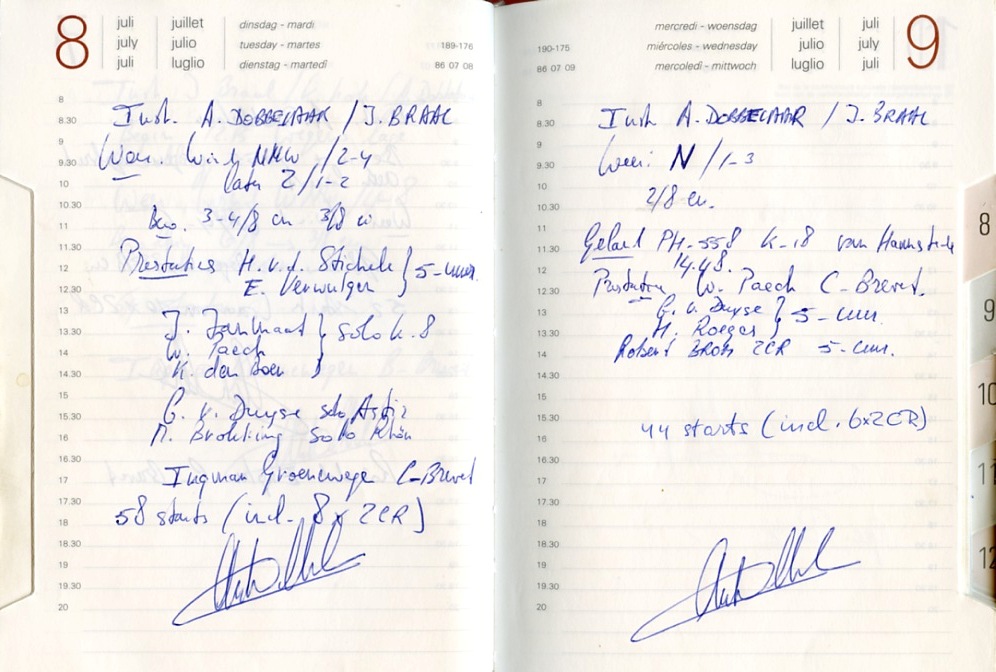 8
juli juillet dinsdag - mardi
july julio tuesday - martes 189-176
juli luglio dienstag - martedì 86 07 08
8
8.30 Inst. A. DOBBELAAR / J. BRAAL
9
9.30 Weer. Wind NNW / 2-4
10 later Z / 1-2
10.30
11 Bew. 3-4/8 cu 3/8 ci
11.30
12 Prestaties H. v.d. Stichele } 5-uur.
12.30 E. Verwulgen
13
13.30 J. Janmaat } solo K.8
14 W. Paech
14.30 K. den Boer
15
15.30 G. v. Duyse solo Astir
16 M. Brohling Solo Rhön
16.30
17 Ingman Groenewege C-Brevet
17.30
18 58 starts (incl. 8x 2CR)
18.30
19
19.30
20
mercredi - woensdag juillet juli 9
190-175 miércoles - wednesday julio july
86 07 09 mercoledì - mittwoch luglio juli
8
8.30 Inst. A. DOBBELAAR / J. BRAAL
9
9.30 Weer: N / 1-3
10 2/8 cu.
10.30
11
11.30 Gelard PH-558 K-18 van
12 14.48.
12.30 Prestaties W. Paech C-Brevet.
13 G. v. Duyse } 5-uur.
13.30 H. Roeges
14 Robert BROK 2CR 5-uur.
14.30
15
15.30 44 starts (incl. 6x2CR)
16
16.30
17
17.30
18
18.30
19
19.30
20
8
9
10
11
12